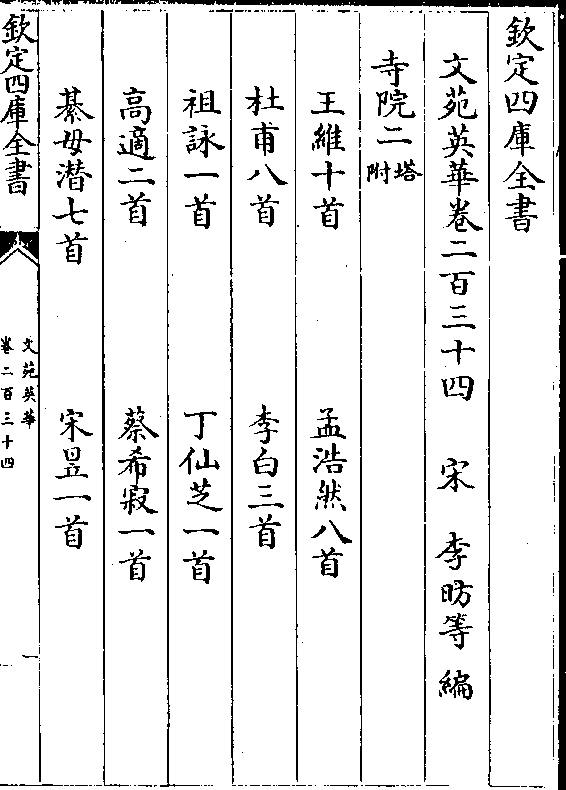 欽定四庫全書
文苑英華卷二百三十四　宋　李昉等編
寺院二塔附
王維十首　孟浩然八首
杜甫八首　李白三首
祖詠一首　丁仙芝一首
高適二首　蔡希寂一首
綦毋潛七首　宋昱一首
欽定四庫全書
文苑英華
卷二百三十四
一